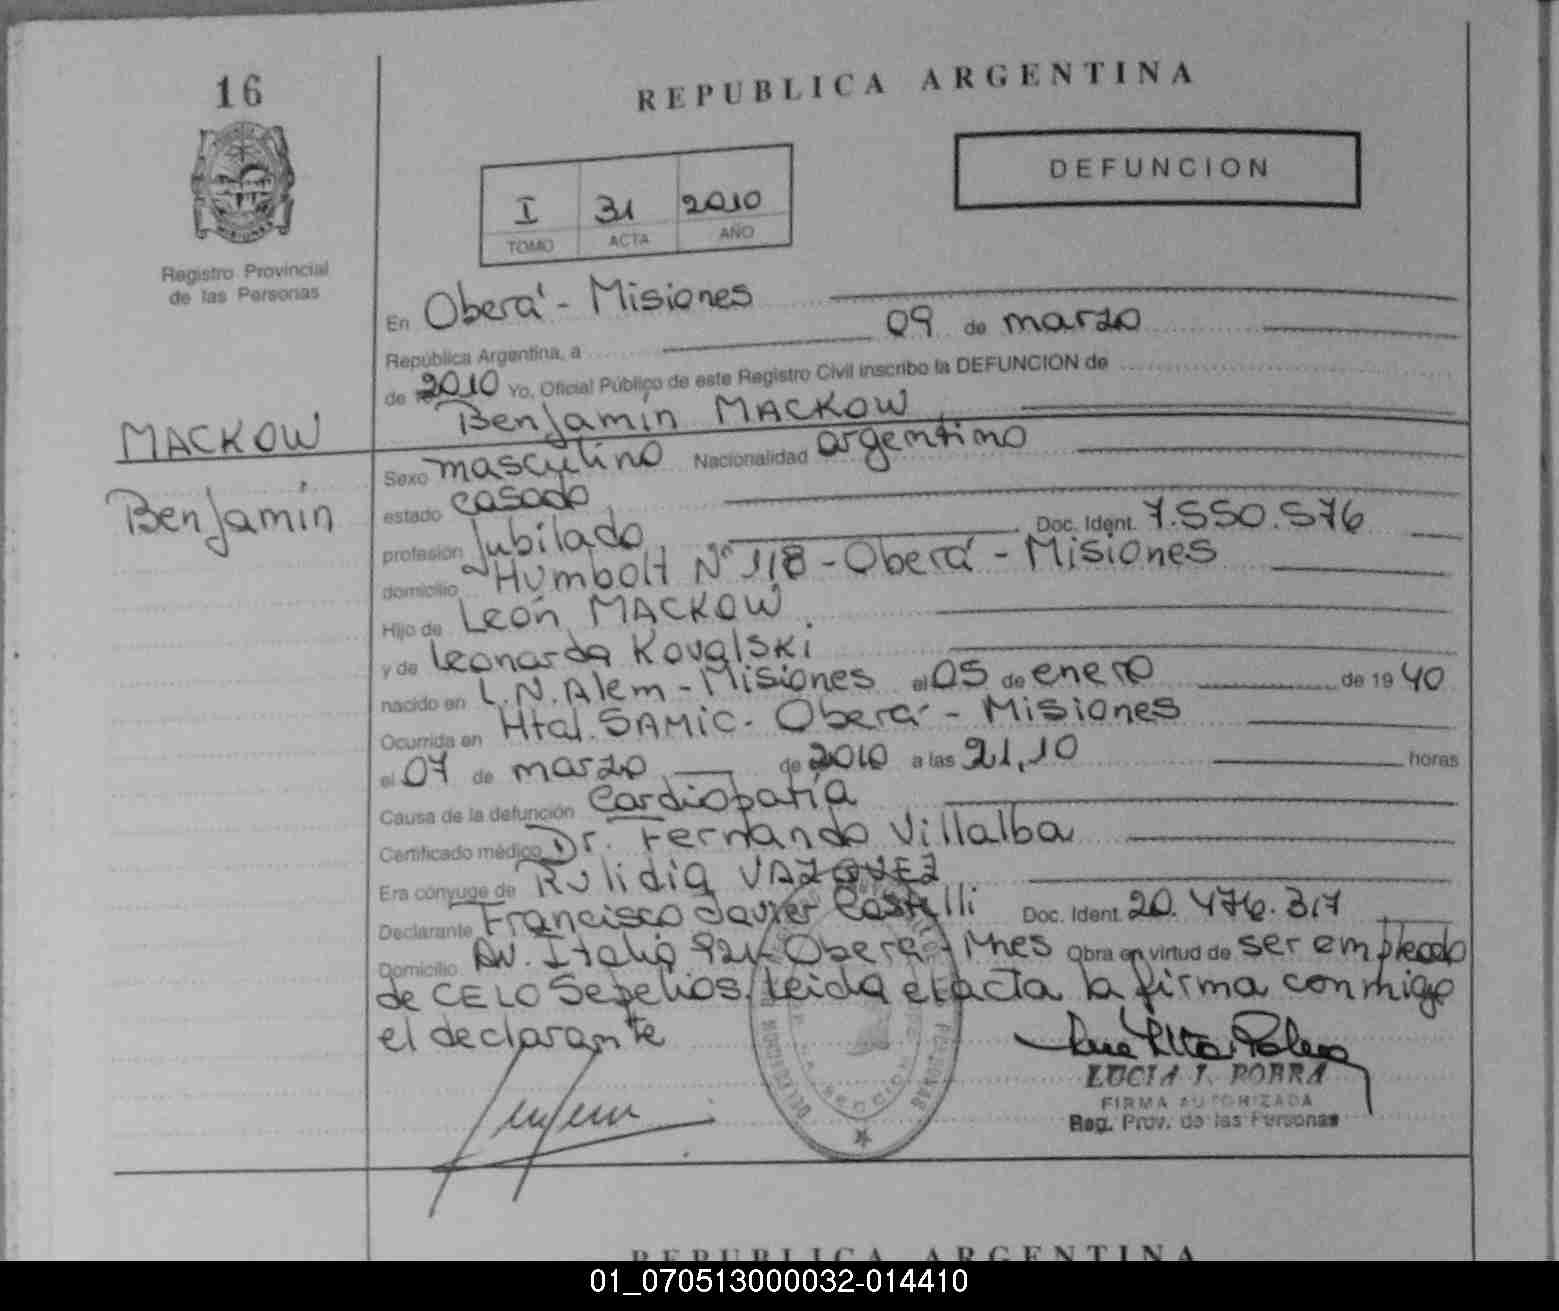 16
REPUBLICA ARGENTINA
DEFUNCION
I 31 2010
TOMO ACTA AÑO
MISIONES
Registro Provincial
de las Personas
En Oberá - Misiones
República Argentina, a 09 de marzo
de 2010 Yo, Oficial Público de este Registro Civil inscribo la DEFUNCION de
Benjamín MACKOW
MACKOW
Benjamín
Sexo masculino Nacionalidad argentino
estado casado
profesión Jubilado Doc. Ident. 7.550.576
domicilio Humbolt Nº 118 - Oberá - Misiones
Hijo de León MACKOW
y de Leonarda Kovalski
nacido en L.N. Alem - Misiones el 05 de enero de 19 40
Ocurrida en Htal. SAMIC - Oberá - Misiones
el 07 de marzo de 2010 a las 21,10 horas
Causa de la defunción Cardiopatía
Certificado médico Dr. Fernando Villalba
Era cónyuge de Rulidia VAZQUEZ
Declarante Francisco Javier Castelli Doc. Ident. 20.476.317
Domicilio Av. Italia 921 - Oberá - Mnes Obra en virtud de ser empleado
de CELO Sepelios. Leida el acta la firma conmigo
el declarante
LUCIA I. PORRA
FIRMA AUTORIZADA
Reg. Prov. de las Personas
REPUBLICA ARGENTINA
01_070513000032-014410